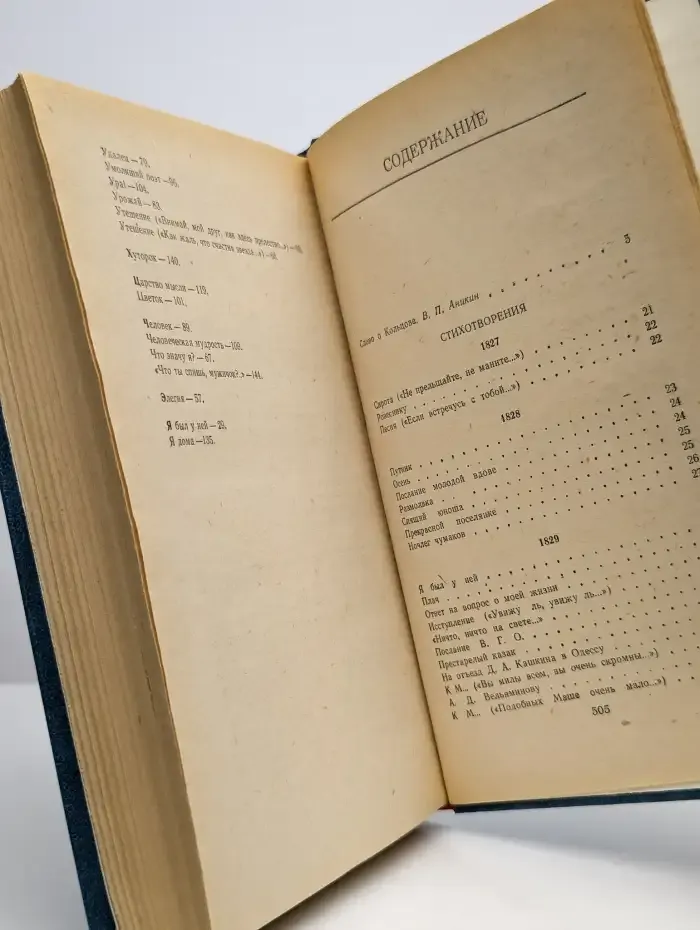 Удалец—70.
Умолкший поэт—96.
Ура!—104.
Урожай—83.
Утешение («Внимай, мой друг, как здесь прелестно...»)
Утешение («Как жаль, что счастия звезда...»)
Хуторок—140.
Царство мысли—119.
Цветок—101.
Человек—89.
Человеческая мудрость—109.
Что значу я?—67.
«Что ты спишь, мужичок?..»—141.
Элегия—57.
Я был у ней—29.
Я дома—135.
СОДЕРЖАНИЕ
Слово о Кольцове. В. П. Аникин . . . . . . . . 5
СТИХОТВОРЕНИЯ
1827
Сирота («Не прельщайте, не маните...») . . . . . . 21
Ровеснику . . . . . . . . . . . . 22
Песня («Если встречусь с тобой...») . . . . . . . 22
1828
Путник . . . . . . . . . . . . 23
Осень . . . . . . . . . . . . 24
Послание молодой вдове . . . . . . . . . 24
Размолвка . . . . . . . . . . . . 25
Спящий юноша . . . . . . . . . . . 25
Прекрасной поселянке . . . . . . . . . . 26
Ночлег чумаков . . . . . . . . . . . 27
1829
Я был у ней . . . . . . . . . . . .
Плач . . . . . . . . . . . .
Ответ на вопрос о моей жизни . . . . . . .
Исступление («Увижу ль, увижу ль...») . . . .
«Ничто, ничто на свете...» . . . . . . . .
Послание В. Г. О. . . . . . . . . .
Престарелый казак . . . . . . . . .
На отъезд Д. А. Кашкина в Одессу . . . . .
К М... («Вы милы всем, вы очень скромны...») . .
А. Д. Вельяминову . . . . . . . .
К М... («Подобных Маше очень мало...») . . .
505